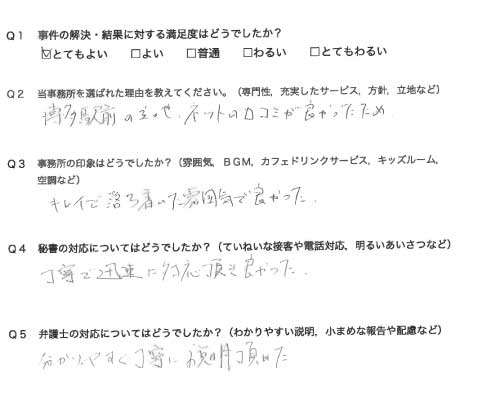 Q1 事件の解決・結果に対する満足度はどうでしたか?
☑とてもよい □よい □普通 □わるい □とてもわるい
Q2 当事務所を選ばれた理由を教えてください。(専門性,充実したサービス,方針,立地など)
博多駅前の立地、ネットの口コミが良かったため.
Q3 事務所の印象はどうでしたか?(雰囲気,BGM,カフェドリンクサービス,キッズルーム,
空調など)
キレイで落ち着いた雰囲気で良かった.
Q4 秘書の対応についてはどうでしたか?(ていねいな接客や電話対応,明るいあいさつなど)
丁寧で迅速に対応頂き良かった.
Q5 弁護士の対応についてはどうでしたか?(わかりやすい説明,小まめな報告や配慮など)
分かりやすく丁寧に説明頂けた